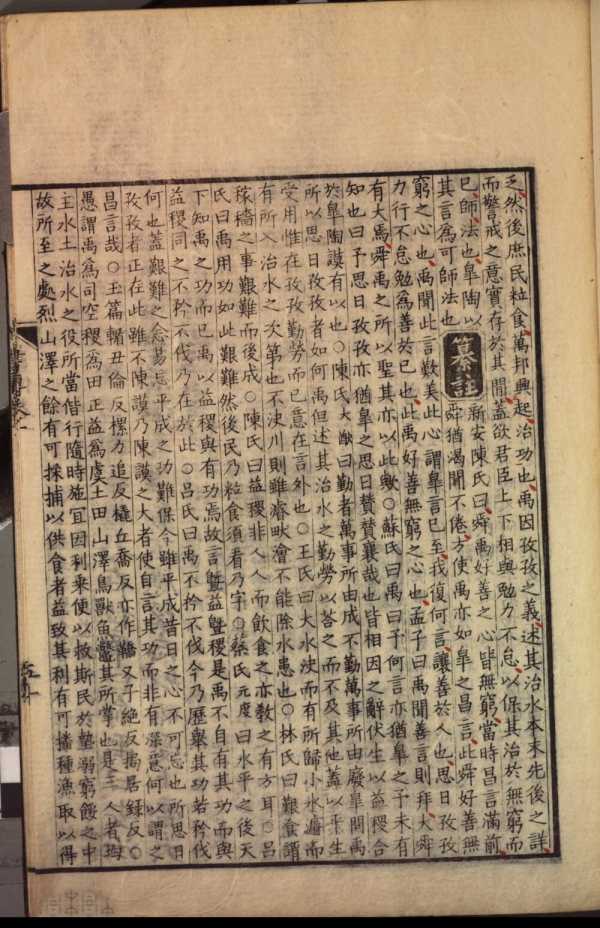 乏然後庶民粒食萬邦興起治功也禹因孜孜之義述其治水本末先後之詳
而警戒之意實存於其間蓋欲君臣上下相與勉力不怠以保其治於無窮而
已師法也皐陶以
其言爲可師法也
纂註
新安陳氏曰舜禹好善之心皆無窮當時昌言滿前
舜猶渴聞不倦方使禹亦如皐之昌言此舜好善無
窮之心也禹聞此言歎美此心謂皐言已至我復何言讓善於人也思日孜孜
力行不怠勉爲善於已也此禹好善無窮之心也孟子曰禹聞善言則拜大舜
有大焉舜禹之所以聖其亦以此歟○蘇氏曰禹曰予何言亦猶皐之予未有
知也曰予思日孜孜亦猶皐之思日贊贊襄哉也皆相因之辭伏生以益稷合
於皐陶謨有以也○陳氏大猷曰勤者萬事所由成不勤萬事所由廢皐問禹
所以思日孜孜者如何禹但述其治水之勤勞以荅之而不及其他蓋以平生
受用惟在孜孜勤勞而已意在言外也○王氏曰大水決而有所歸小水濬而
有所入治水之次第也不決川則雖濬畎澮不能除水患也○林氏曰艱食謂
稼穡之事艱難而後成○陳氏曰益稷非人人而飲食之亦敎之有方耳○呂
氏曰禹用功如此艱難然後民乃粒食須看乃字○蔡氏元度曰水平之後天
下知禹之功而已禹以益稷與有功焉故言曁益曁稷是禹不自有其功而與
益稷同之不矜不伐乃在於此○呂氏曰禹不矜不伐今乃歷舉其功若矜伐
何也蓋艱難之念易忘平成之功難保今雖平成昔日之心不可忘也所思日
孜孜者正在此雖不陳謨乃陳謨之大者使自言其功而非有深意何以謂之
昌言哉○玉篇輴丑倫反樏力追反橇丘喬反亦作鞽又子絶反梮居録反○
愚謂禹爲司空稷爲田正益爲虞土田山澤鳥獸魚鼈其所掌也是三人者均
主水土治水之役所當偕行隨時施宜因利乘便以救斯民於墊溺窮餒之中
故所至之處烈山澤之餘有可採捕以供食者益致其利有可播種漁取以得